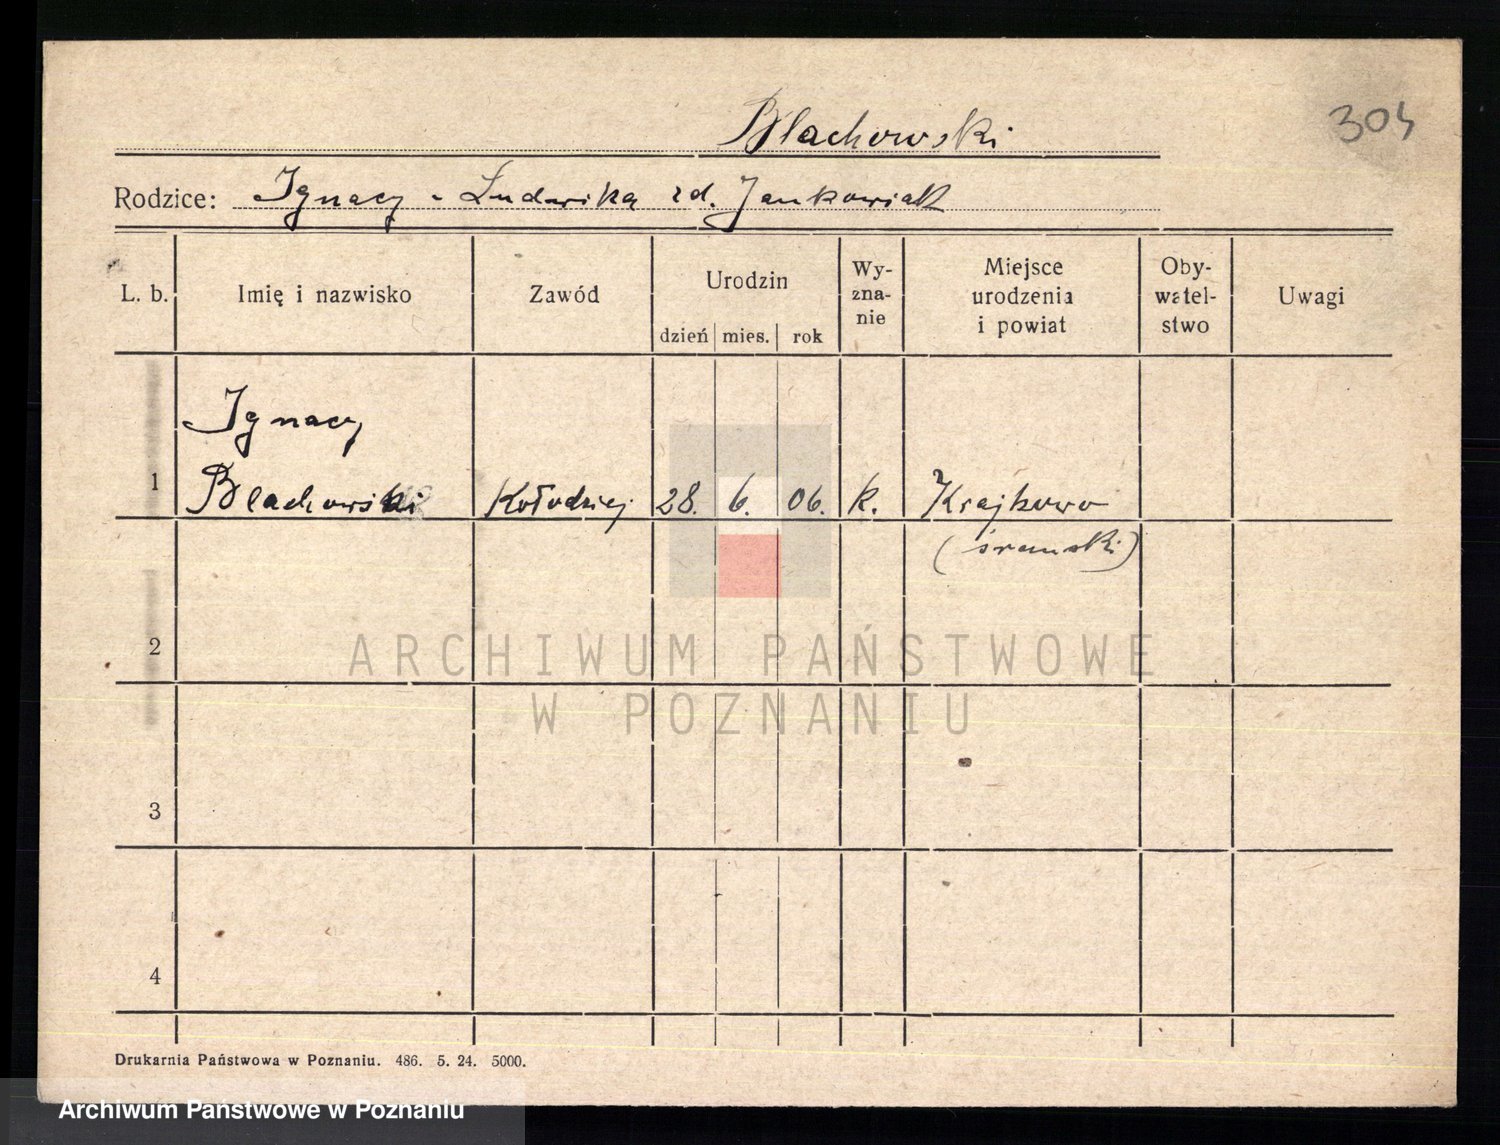 Blachowski
304
Rodzice: Ignacy - Ludwika zd. Jankowiak
L. b.
Imię i nazwisko
Zawód
Urodzin
dzień
mies.
rok
Wy-
zna-
nie
Miejsce
urodzenia
i powiat
Oby-
watel-
stwo
Uwagi
Ignacy
1 Blachowski Kołodziej 28. 6. 06. k. Krajkowo
(śremski)
2
ARCHIWUM PAŃSTWOWE
W POZNANIU
3
4
Drukarnia Państwowa w Poznaniu. 486. 5. 24. 5000.
Archiwum Państwowe w Poznaniu